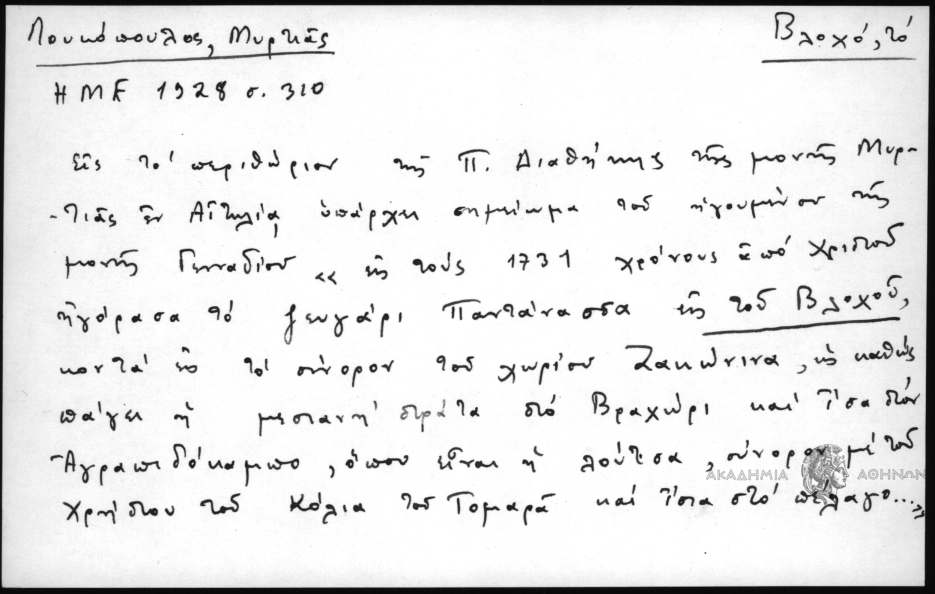 Λουκόπουλος, Μυρτιᾶς
Βλοχό, τό
ΗΜΕ 1928 σ. 310
εἰς τό περιθώριον τῆς Π. Διαθήκης τῆς μονῆς Μυρ-
-τιᾶς ἐν Αἰτωλίᾳ ὑπάρχει σημείωμα τοῦ ἡγουμένου τῆς
μονῆς Γενναδίου «εἰς τούς 1731 χρόνους ἀπό Χριστοῦ
ἠγόρασα τό ζευγάρι Παντάνασσα εἰς τοῦ Βλοχοῦ,
κοντά εἰς τό σύνορον τοῦ χωρίου Ζακώνινα, ὡς καθώς
παίγει ἡ μεσιανή στράτα στό Βραχώρι καί ἴσα στόν
Ἀγραπιδόκαμπο, ὅπου εἶναι ἡ λούτσα, σύνορον μέ τοῦ
Χρήστου τοῦ Κόλια τοῦ Τομαρᾶ καί ἴσια στό πέλαγο...»
ΑΚΑΔΗΜΙΑ ΑΘΗΝΩΝ